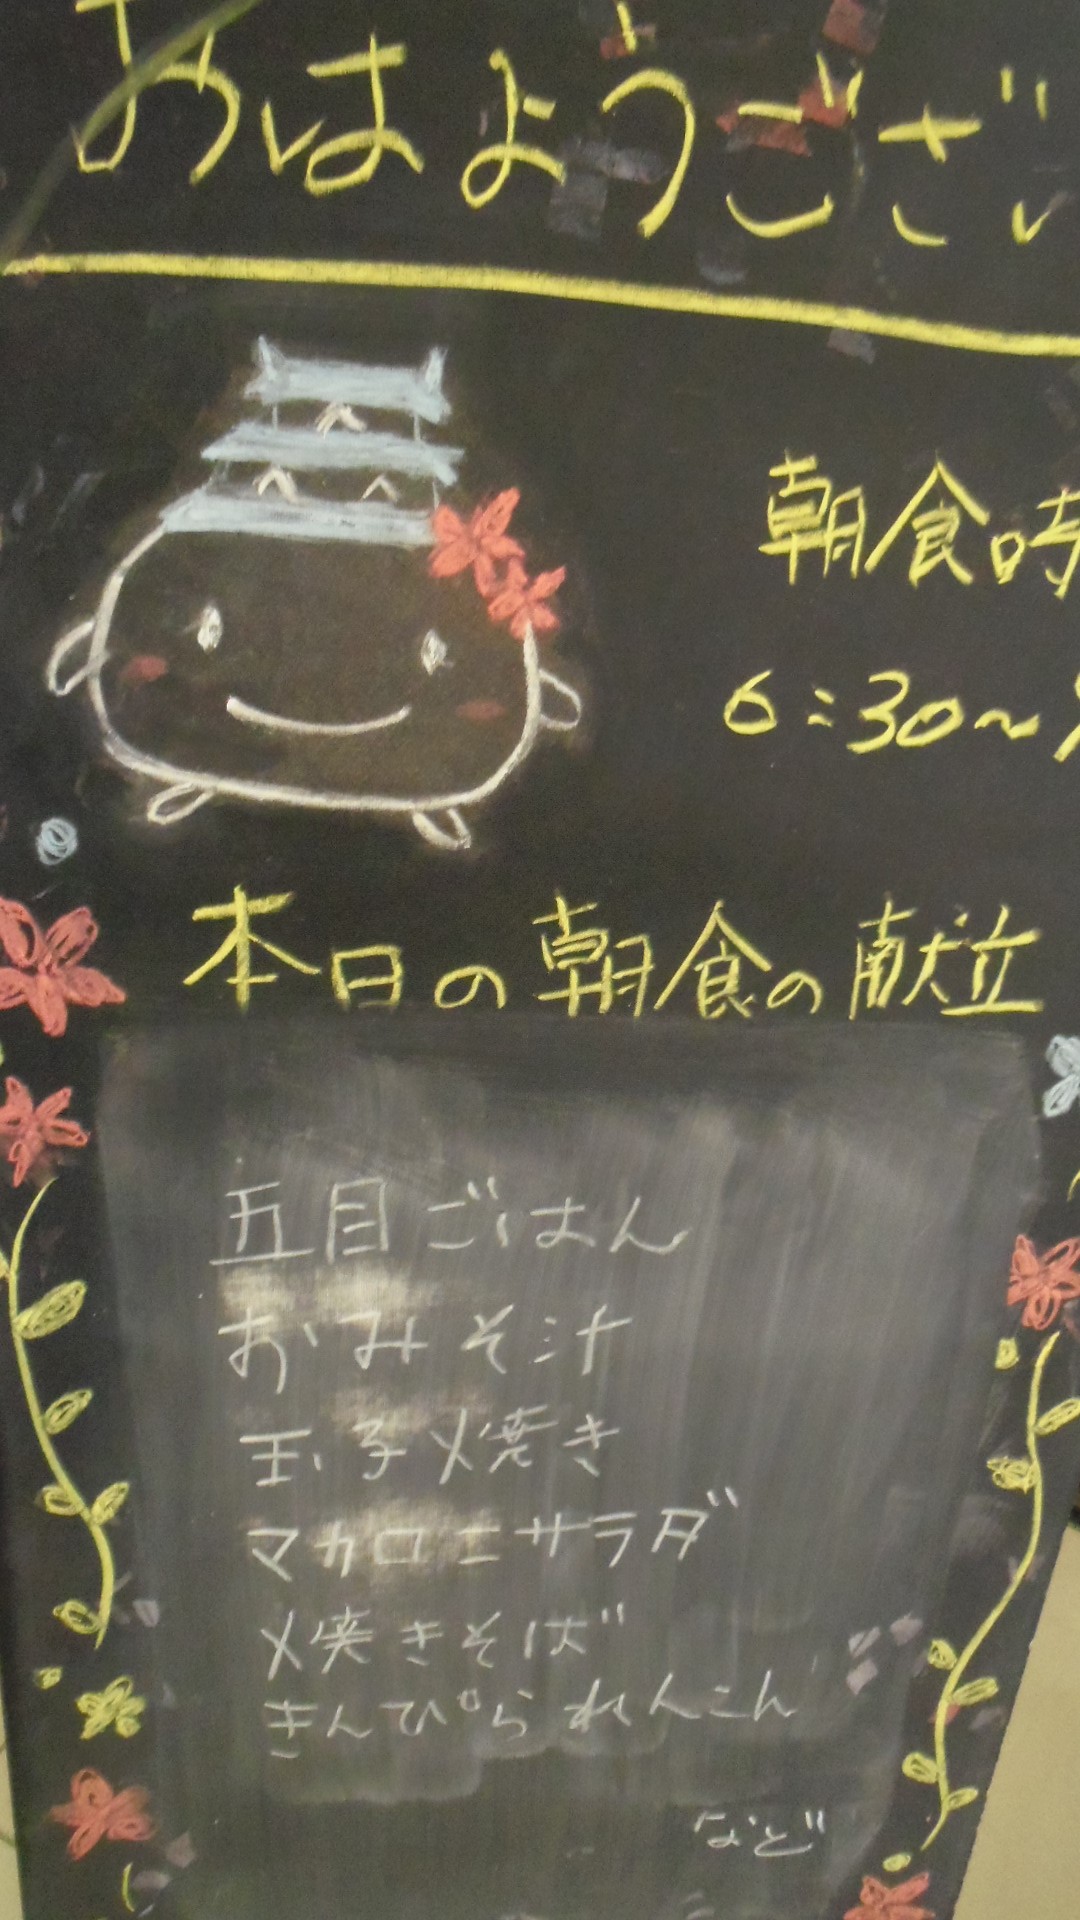 おはようござい
朝食時
6:30〜
本日の朝食の献立
五目ごはん
おみそ汁
玉子焼き
マカロニサラダ
焼きそば
きんぴられんこん
など